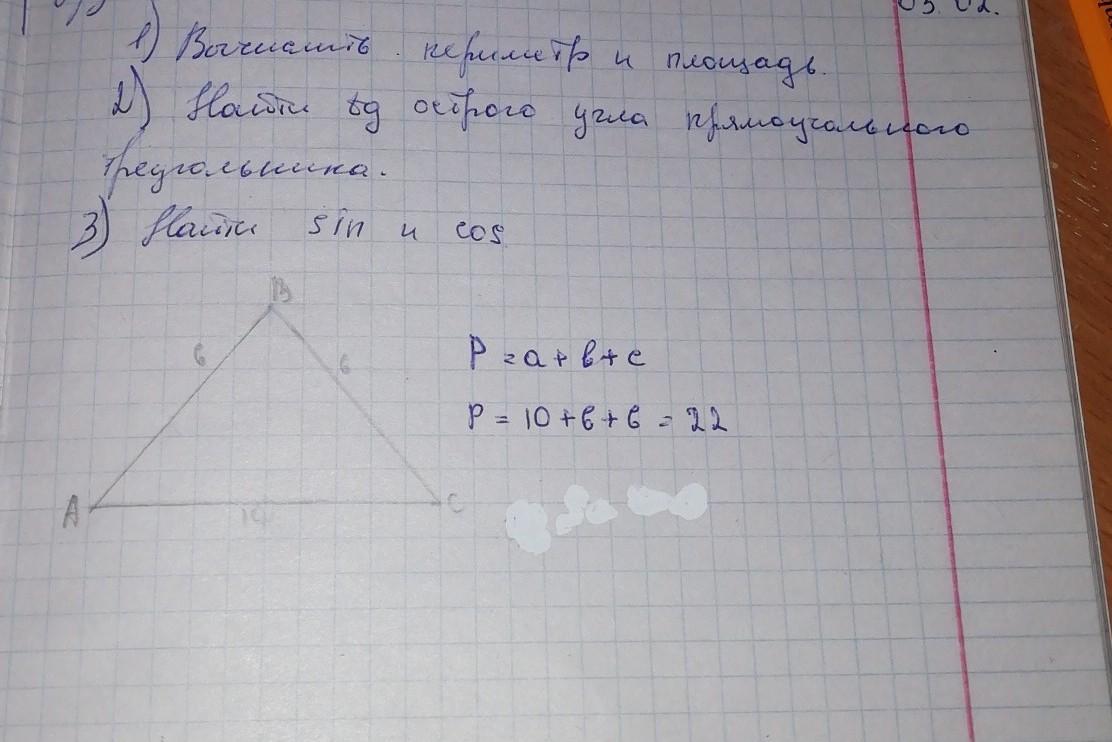 03.02.
1) Вычислить периметр и площадь.
2) Найти tg острого угла прямоугольного
треугольника.
3) Найти sin и cos
B
6 6
P = a + b + c
P = 10 + 6 + 6 = 22
A 10 C